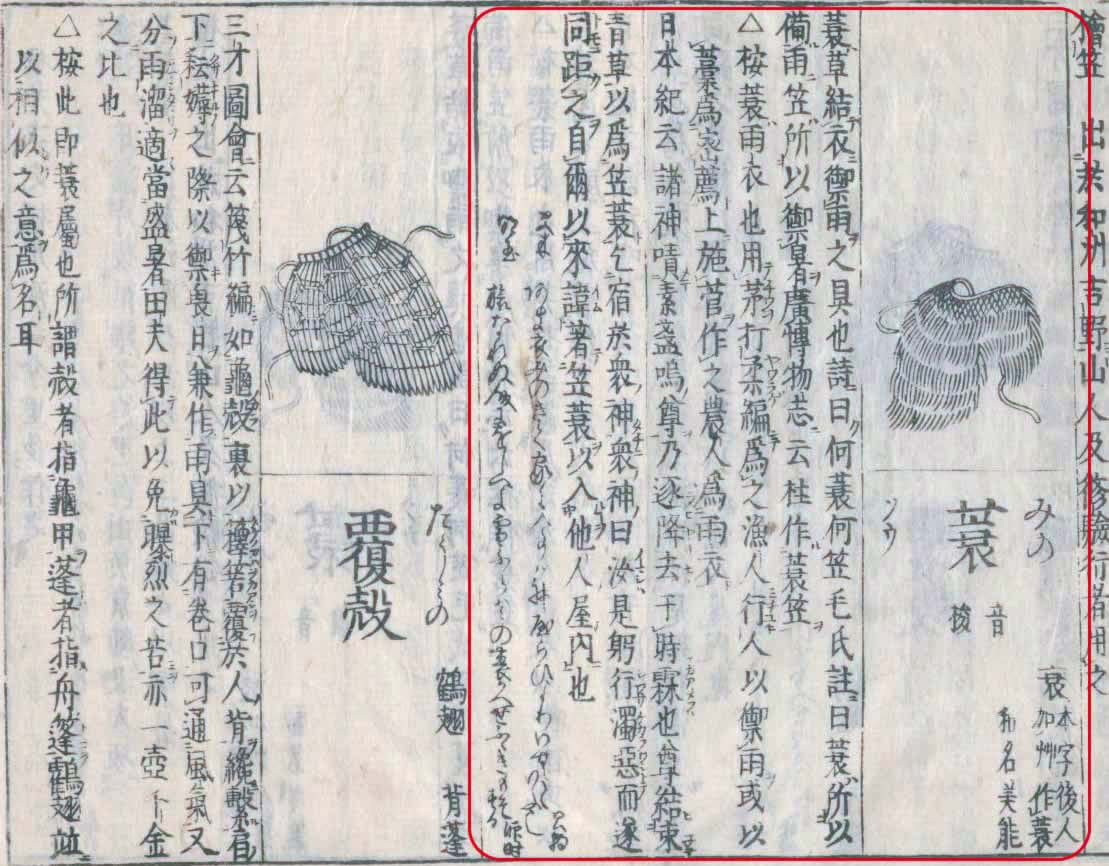 檜笠 出於和州吉野山人及修驗行者用之
みの
蓑
音
梭
サウ
衰本字後人
加艸作蓑
和名美能
蓑草結衣禦雨之具也詩曰何蓑何笠毛氏註曰蓑所以
備雨笠所以禦暑廣博物志云杜作蓑笠
△桉蓑雨衣也用茅打柔編爲之漁人行人以禦雨或以
藁爲裏薦上施菅作之農人爲雨衣
日本紀云諸神嘖素盞嗚尊乃逐降去于時霖也尊結束
青草以爲笠蓑乞宿於衆神衆神曰汝是躬行濁惡而逐
同距之自爾以來諱著笠蓑以入他人屋内也
覆殼
鶴翅
背蓬
三才圖會云篾竹編如龜殼裏以籜箬覆於人背繩繫肩
下耘耨之際以禦畏日兼作雨具下有卷口可通風氣又
分雨溜適當盛暑田夫得此以免曝烈之苦亦一壺千金
之比也
△桉此即蓑屬也所謂殼者指龜甲蓬者指舟篷鶴翅竝
以相似之意爲名耳